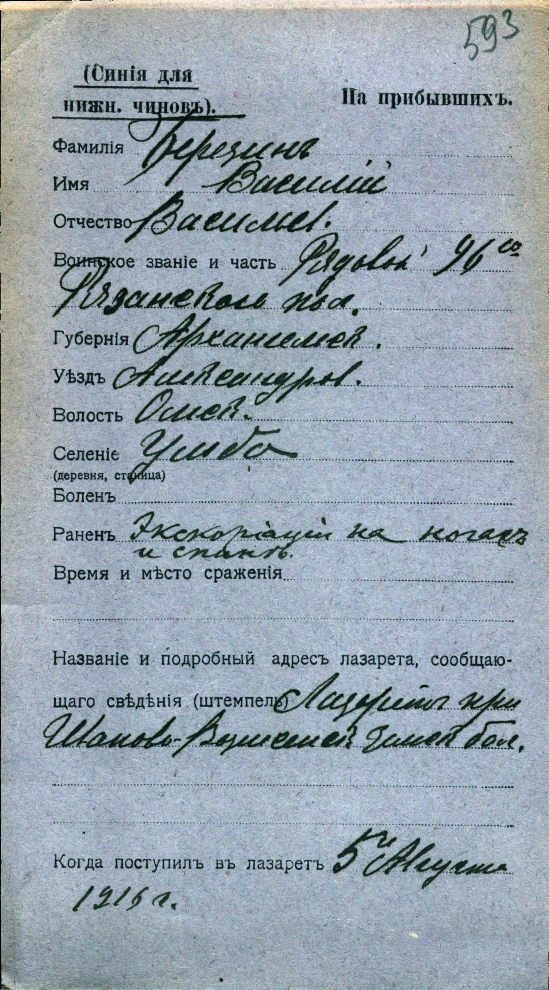 593
(Синія для
нижн. чиновъ).
На прибывшихъ.
Фамилія Березинъ
Имя Василій
Отчество Васильев.
Воинское званіе и часть Рядовой 96го
Рязанскаго пол.
Губернія Архангельск.
Уѣздъ Александров.
Волость
Селеніе Умба
(деревня, станица)
Боленъ
Раненъ Экскоріаціи на ногахъ
и спинѣ.
Время и мѣсто сраженія
Названіе и подробный адресъ лазарета, сообщаю-
щаго свѣдѣнія (штемпель) Лазаретъ при
Иваново-Вознесенск земск бол.
Когда поступилъ въ лазаретъ 5го Августа
1915 г.